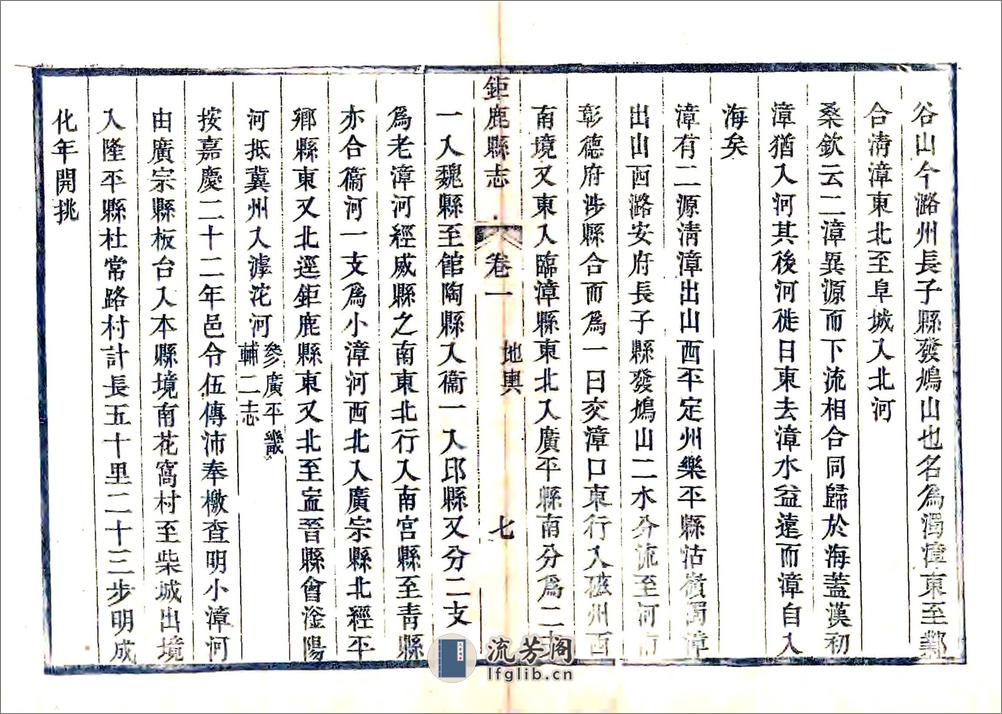 谷山今潞州長子縣發鳩山也名爲濁漳東至鄴
合淸漳東北至阜城入北河
桑欽云二漳異源而下流相合同歸於海蓋漢初
漳猶入河其後河徙日東去漳水益遠而漳自入
海矣
漳有二源淸漳出山西平定州樂平縣沾嶺濁漳
出山西潞安府長子縣發鳩山二水分流至河南
彰德府涉縣合而爲一曰交漳口東行入磁州西
南境又東入臨漳縣東北入廣平縣南分爲二支
鉅鹿縣志 卷一 地輿 七
一入魏縣至館陶縣入衞一入邱縣又分二支一
爲老漳河經威縣之南東北行入南宮縣至靑縣
亦合衞河一支爲小漳河西北入廣宗縣北經平
鄉縣東又北逕鉅鹿縣東又北至寍晉縣會滏陽
河抵冀州入滹沱河參廣平畿
輔二志
按嘉慶二十二年邑令伍傳沛奉檄查明小漳河
由廣宗縣板台入本縣境南花窩村至柴城出境
入隆平縣杜常路村計長五十里二十三步明成
化年開挑
流芳阁
lfglib.cn